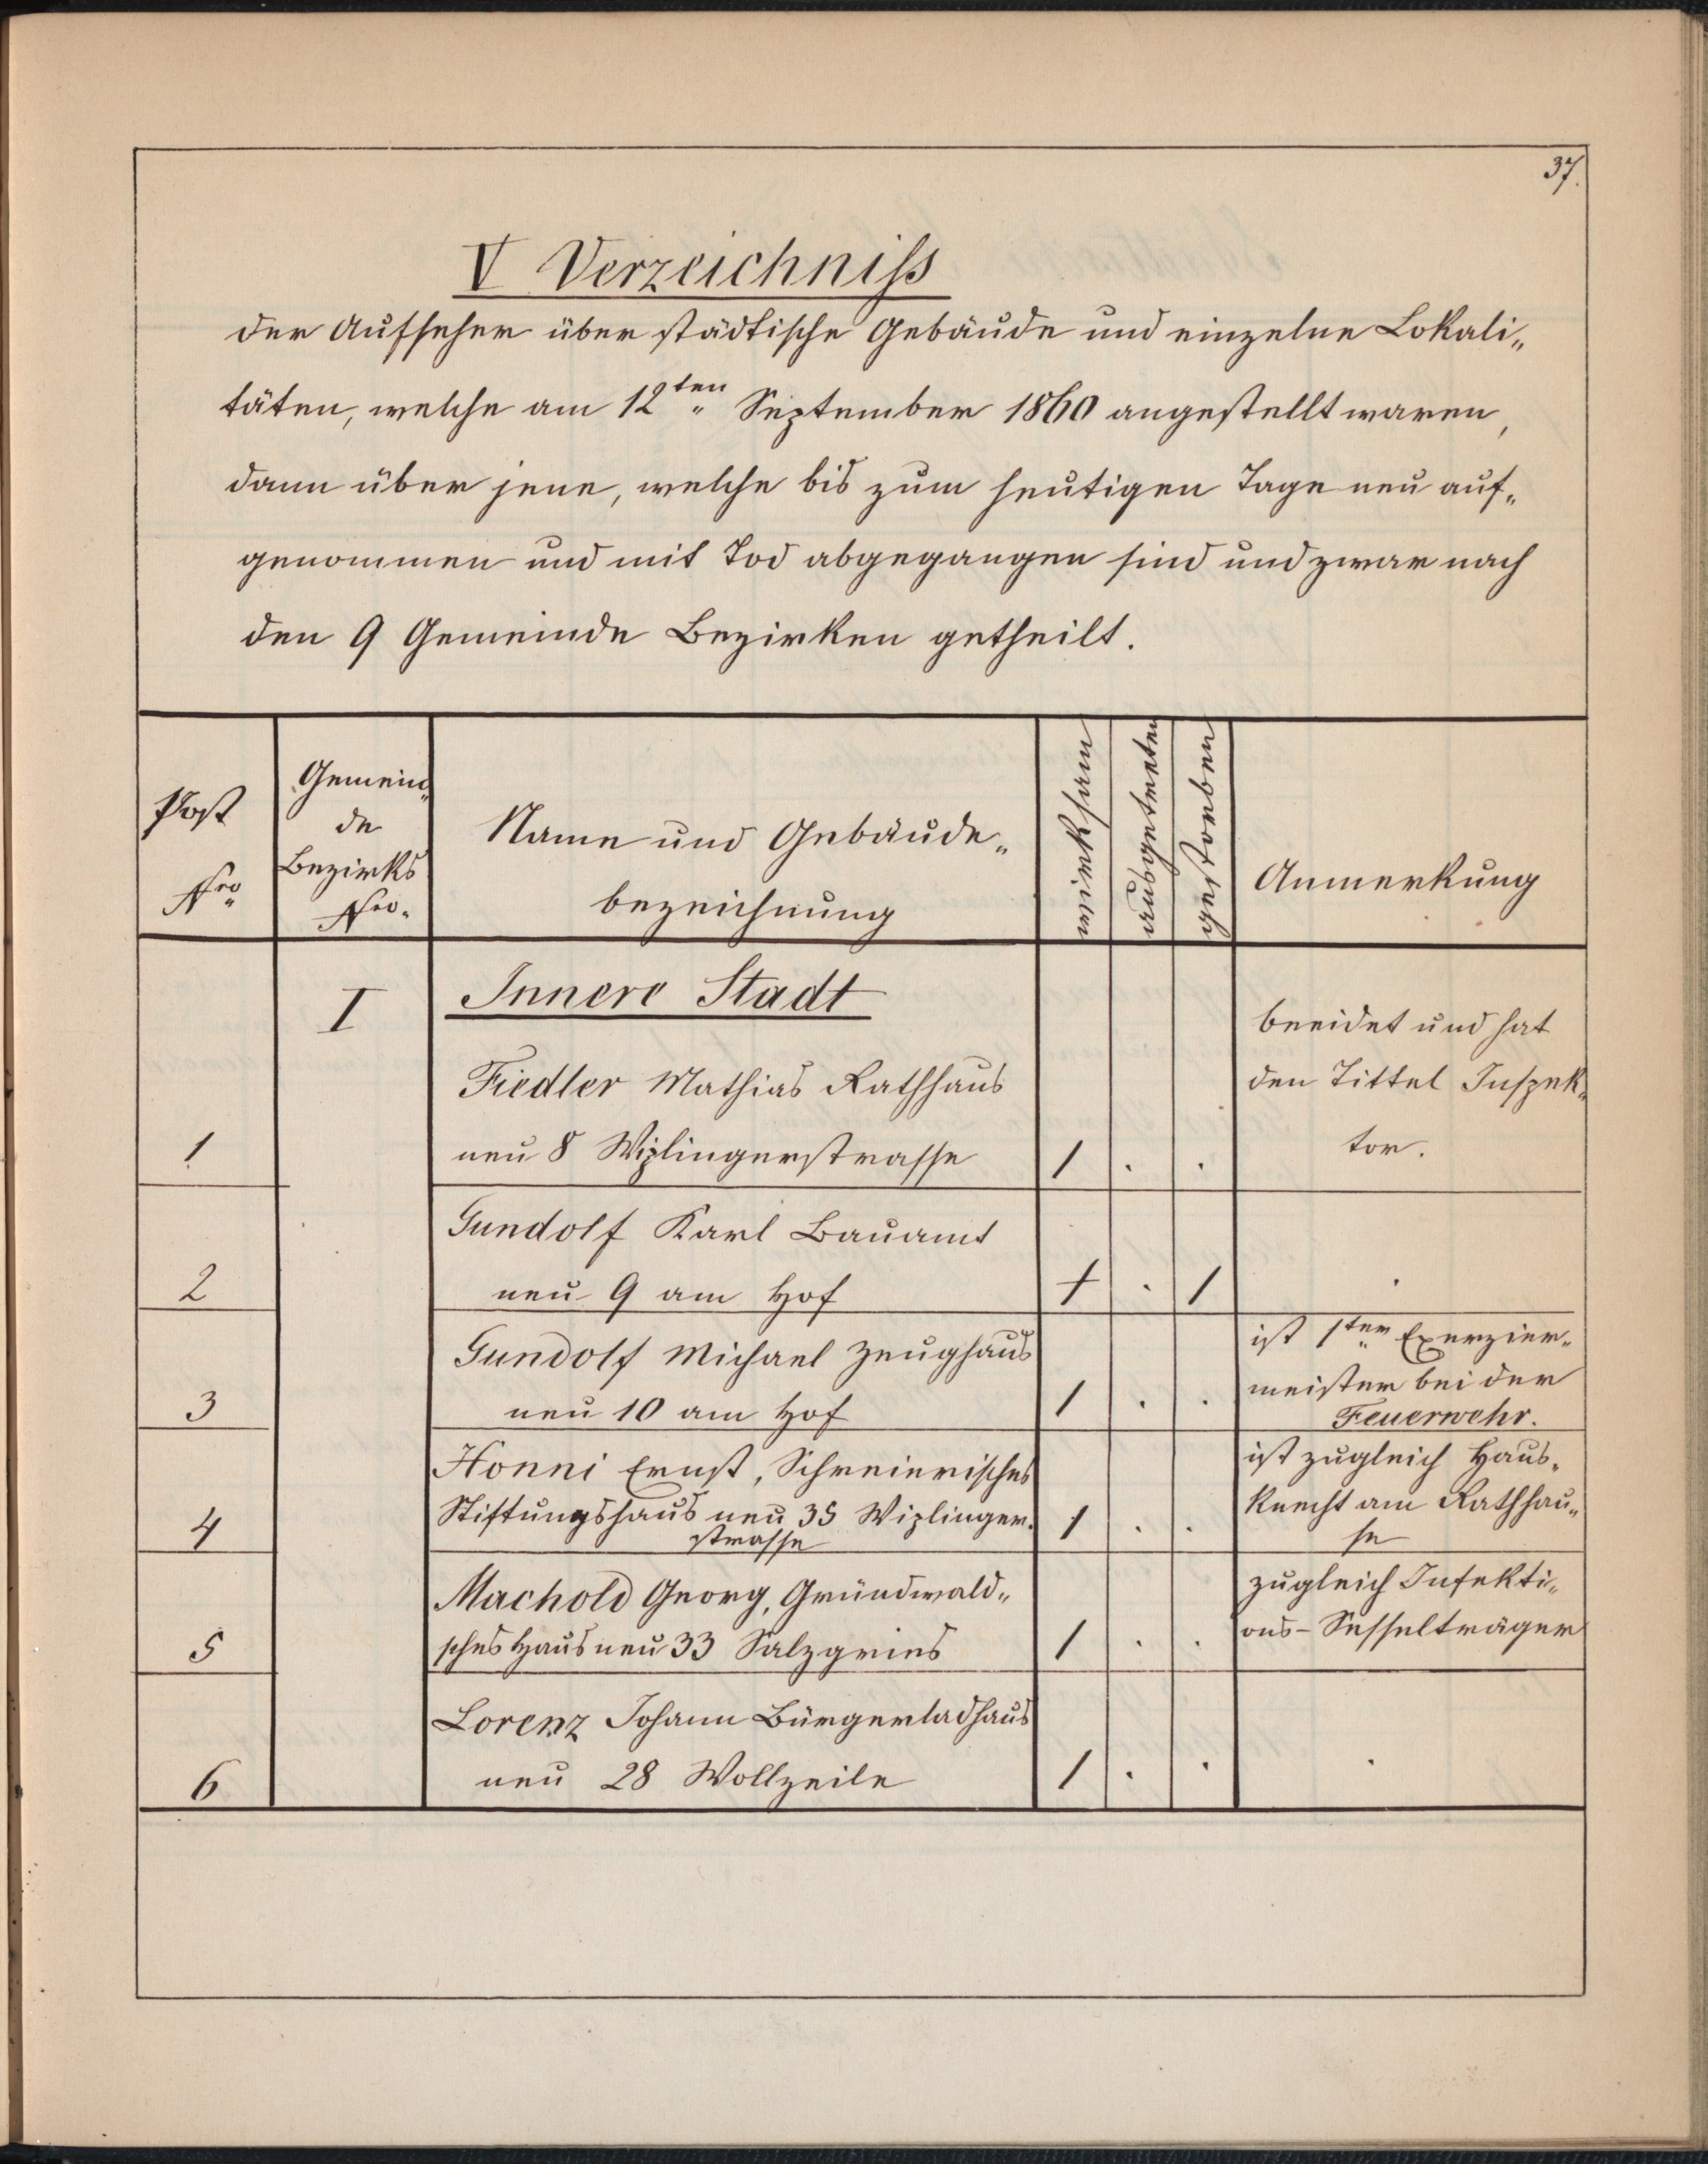 37.
V Verzeichniß
der Aufseher über städtische Gebäude und einzelne Lokali„
täten, welche am 12ten September 1860 angestellt waren,
dann über jene, welche bis zum heutigen Tage neu auf„
genommen und mit Tod abgegangen sind und zwar nach
den 9 Gemeinde Bezirken getheilt.
Post
Nro
Gemein„
de
Bezirks
Nro.
Name und Gebäude„
bezeichnung
wirksam
ausgetreten
gestorben
Anmerkung
I
Innere Stadt
Fiedler Mathias Rathhaus
1 neu 8 Wiplingerstrasse 1 . .
beeidet und hat
den Tittel Inspek„
tor.
Gundolf Karl Bauamt
2 neu 9 am Hof 1 . 1 .
Gundolf Michael Zeughaus
3 neu 10 am Hof 1 . .
ist 1ter Exerzier„
meister bei der
Feuerwehr.
Honni Ernst, Schreierisches
4 Stiftungshaus neu 35 Wiplinger„ 1 . .
strasse
ist zugleich Haus„
knecht am Rathhau„
se
Machold Georg, Gründwald„
5 sches Haus neu 33 Salzgries 1 . .
zugleich Infekti„
ons-Sesselträger
Lorenz Johann Bürgerladhaus
6 neu 28 Wollzeile 1 . . .